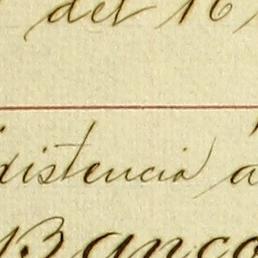 del 16
xistencia á
Banco